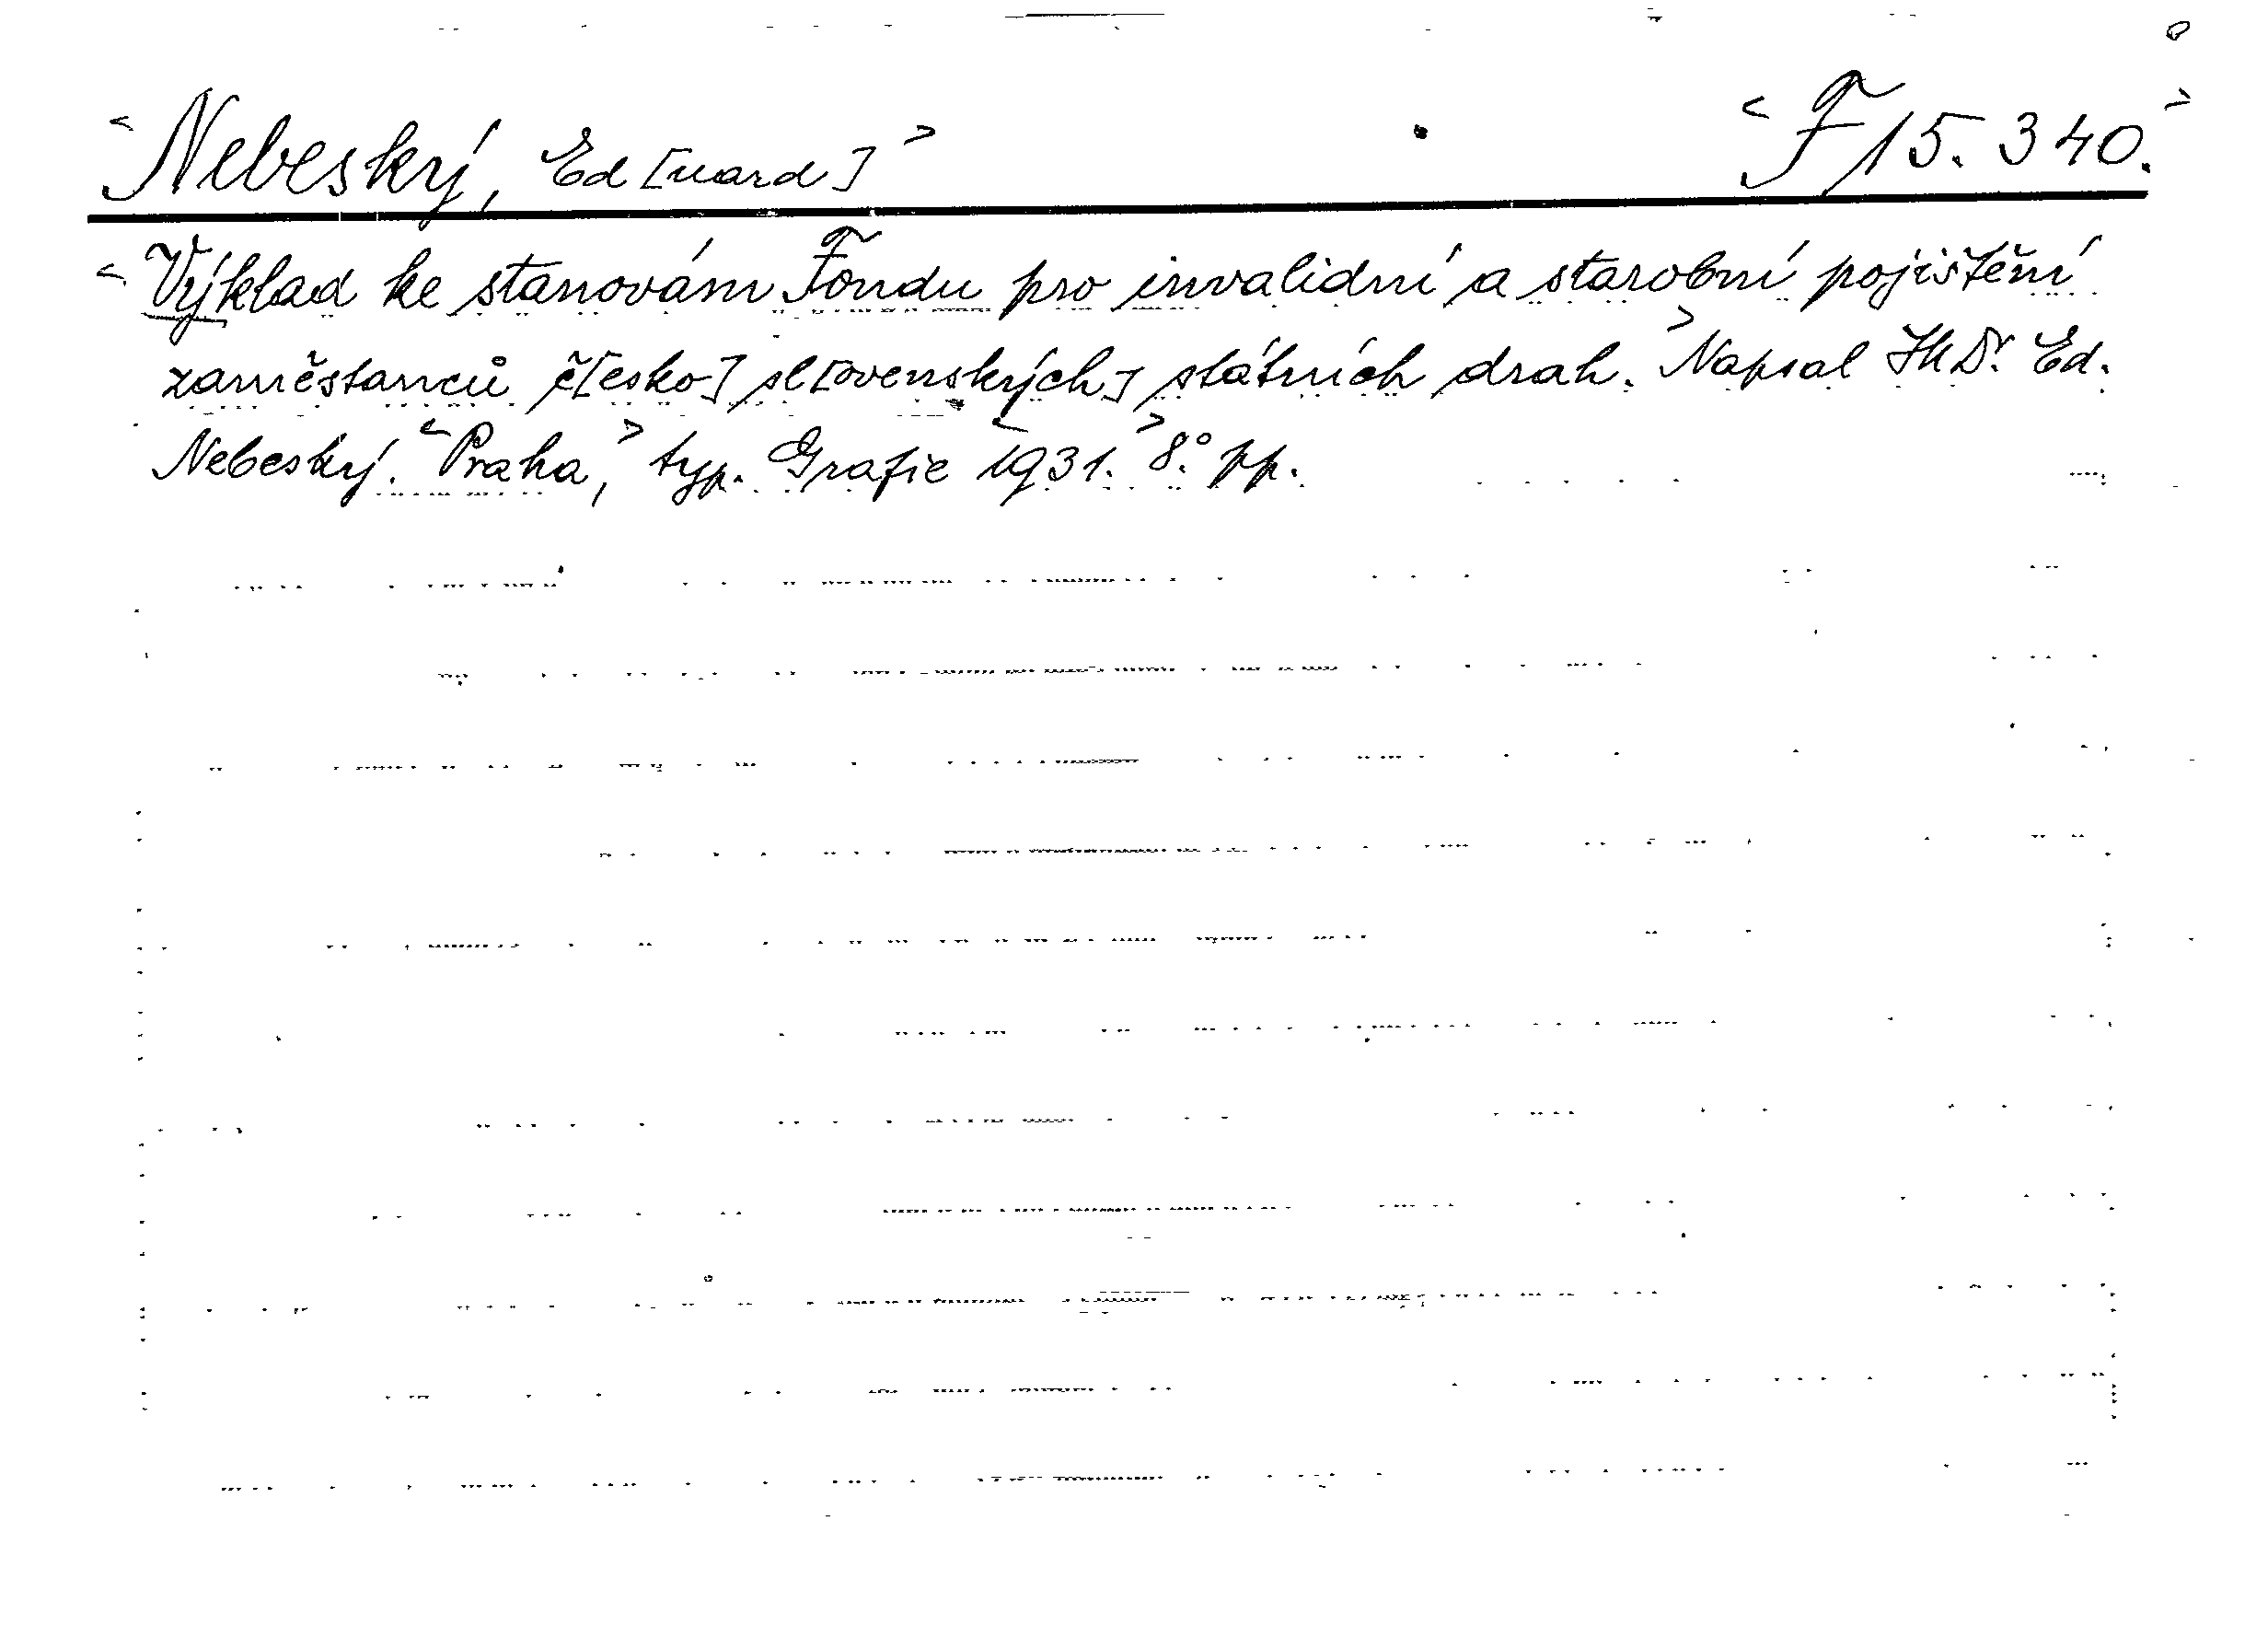 <Nebeský, Ed[uard]> <F 15.340.>
<Výklad ke stanovám Fondu pro invalidní a starobní pojištění
zaměstanců č[esko]sl[ovenských] státních drah.> Napsal JUDr. Ed.
Nebeský. <Praha,> typ. Grafie <1931.> 8.° pp.